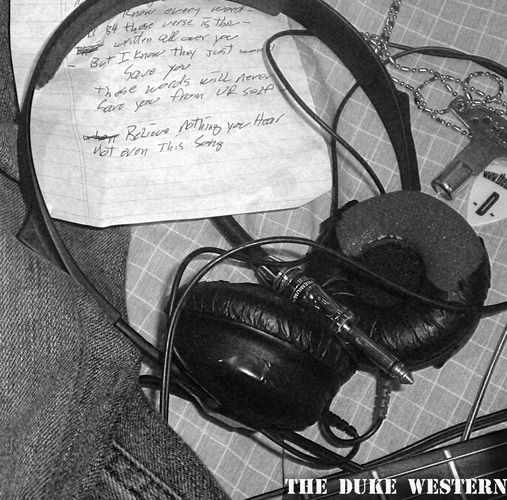 Know every word
B4 these verse is the
written all over you
But I know they just won
Save you
those words will never
Save you from UR self
Believe Nothing you Hear
Not even This Song
www.
-D-
THE DUKE WESTERN